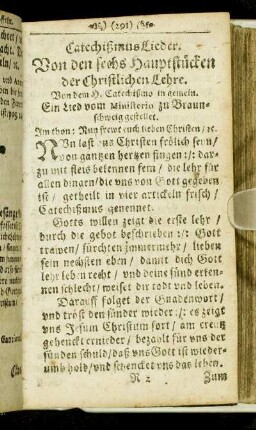 (291)
Catechißmus Lieder.
Von den sechs Hauptstücken
der Christlichen Lehre.
Von dem H. Catechismo in gemein.
Ein Lied vom Ministerio zu Braun-
schweig gestellet.
Im thon: Nun frewt euch lieben Christen / ꝛc.
NUn last uns Christen frölich seyn /
von gantzen hertzen singen :/: dar-
zu mit fleis bekennen fein / die lehr für
allen dingen / die vns von Gott gegeben
ist / getheilt in vier artickeln frisch /
Catechißmus genennet.
Gotts willen zeigt die erste lehr /
durch die gebot beschrieben :/: Gott
trawen / fürchten jmmermehr / lieben
sein nechsten eben / damit dich Gott
lehr leben recht / vnd deine sünd erken-
nen schlecht / weiset dir todt vnd leben.
Darauff folget der Gnadenwort /
vnd tröst den sünder wieder :/: es zeigt
vns Jesum Christum fort / am creutz
gehenckt ernieder / bezahlt für vns der
sünden schuld / daß vns Gott ist wieder-
umb hold / vnd schencket vns das leben.
R 2 Zum